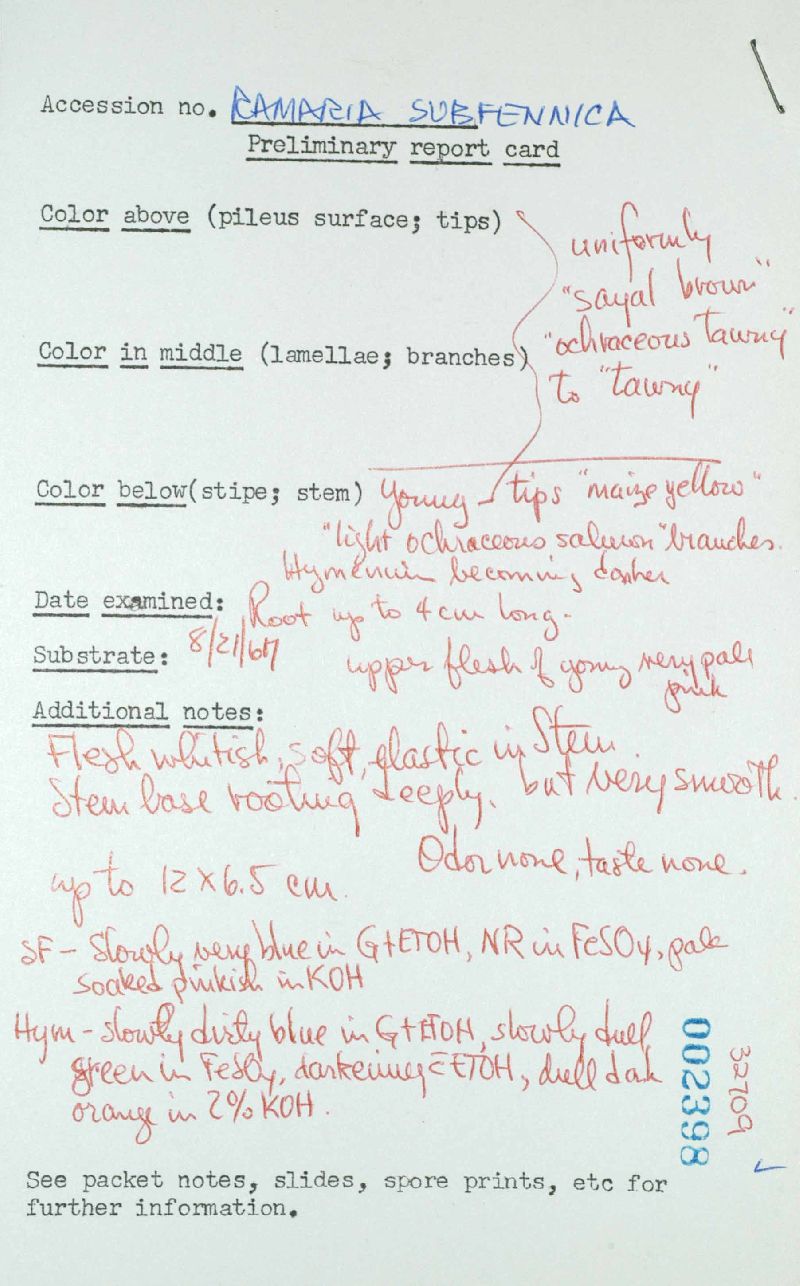 Accession no. RAMARIA SUBFENNICA
Preliminary report card
Color above (pileus surface; tips)
uniformly
"sayal brown"
"ochraceous tawny"
to "tawny"
Color in middle (lamellae; branches)
Color below(stipe; stem) Young - tips "maize yellow"
"light ochraceous salmon" branches.
Hymenium becoming darker
Date examined: Root up to 4 cm long.
8/21/67
Substrate:
upper flesh of young very pale
pink
Additional notes:
Flesh whitish, soft, elastic in Stem
Stem base rooting deeply, but very smooth.
Odor none, taste none.
up to 12 X 6.5 cm.
SF - Slowly very blue in G+ETOH, NR in FeSO4, pale
soaked pinkish in KOH
Hym - slowly dirty blue in G+ETOH, slowly dull
green in FeSO4, darkening c̄ ETOH, dull dark
orange in 2% KOH.
002398
32709
See packet notes, slides, spore prints, etc for
further information.